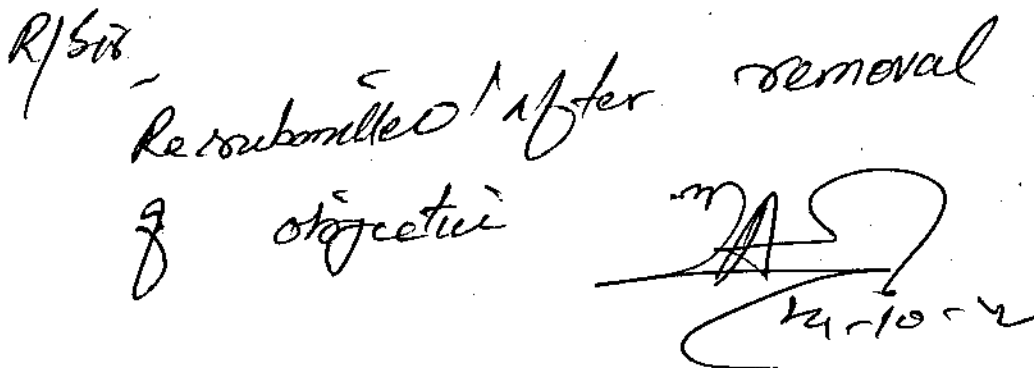 R/Sir
Resubmitted after removal
of objection